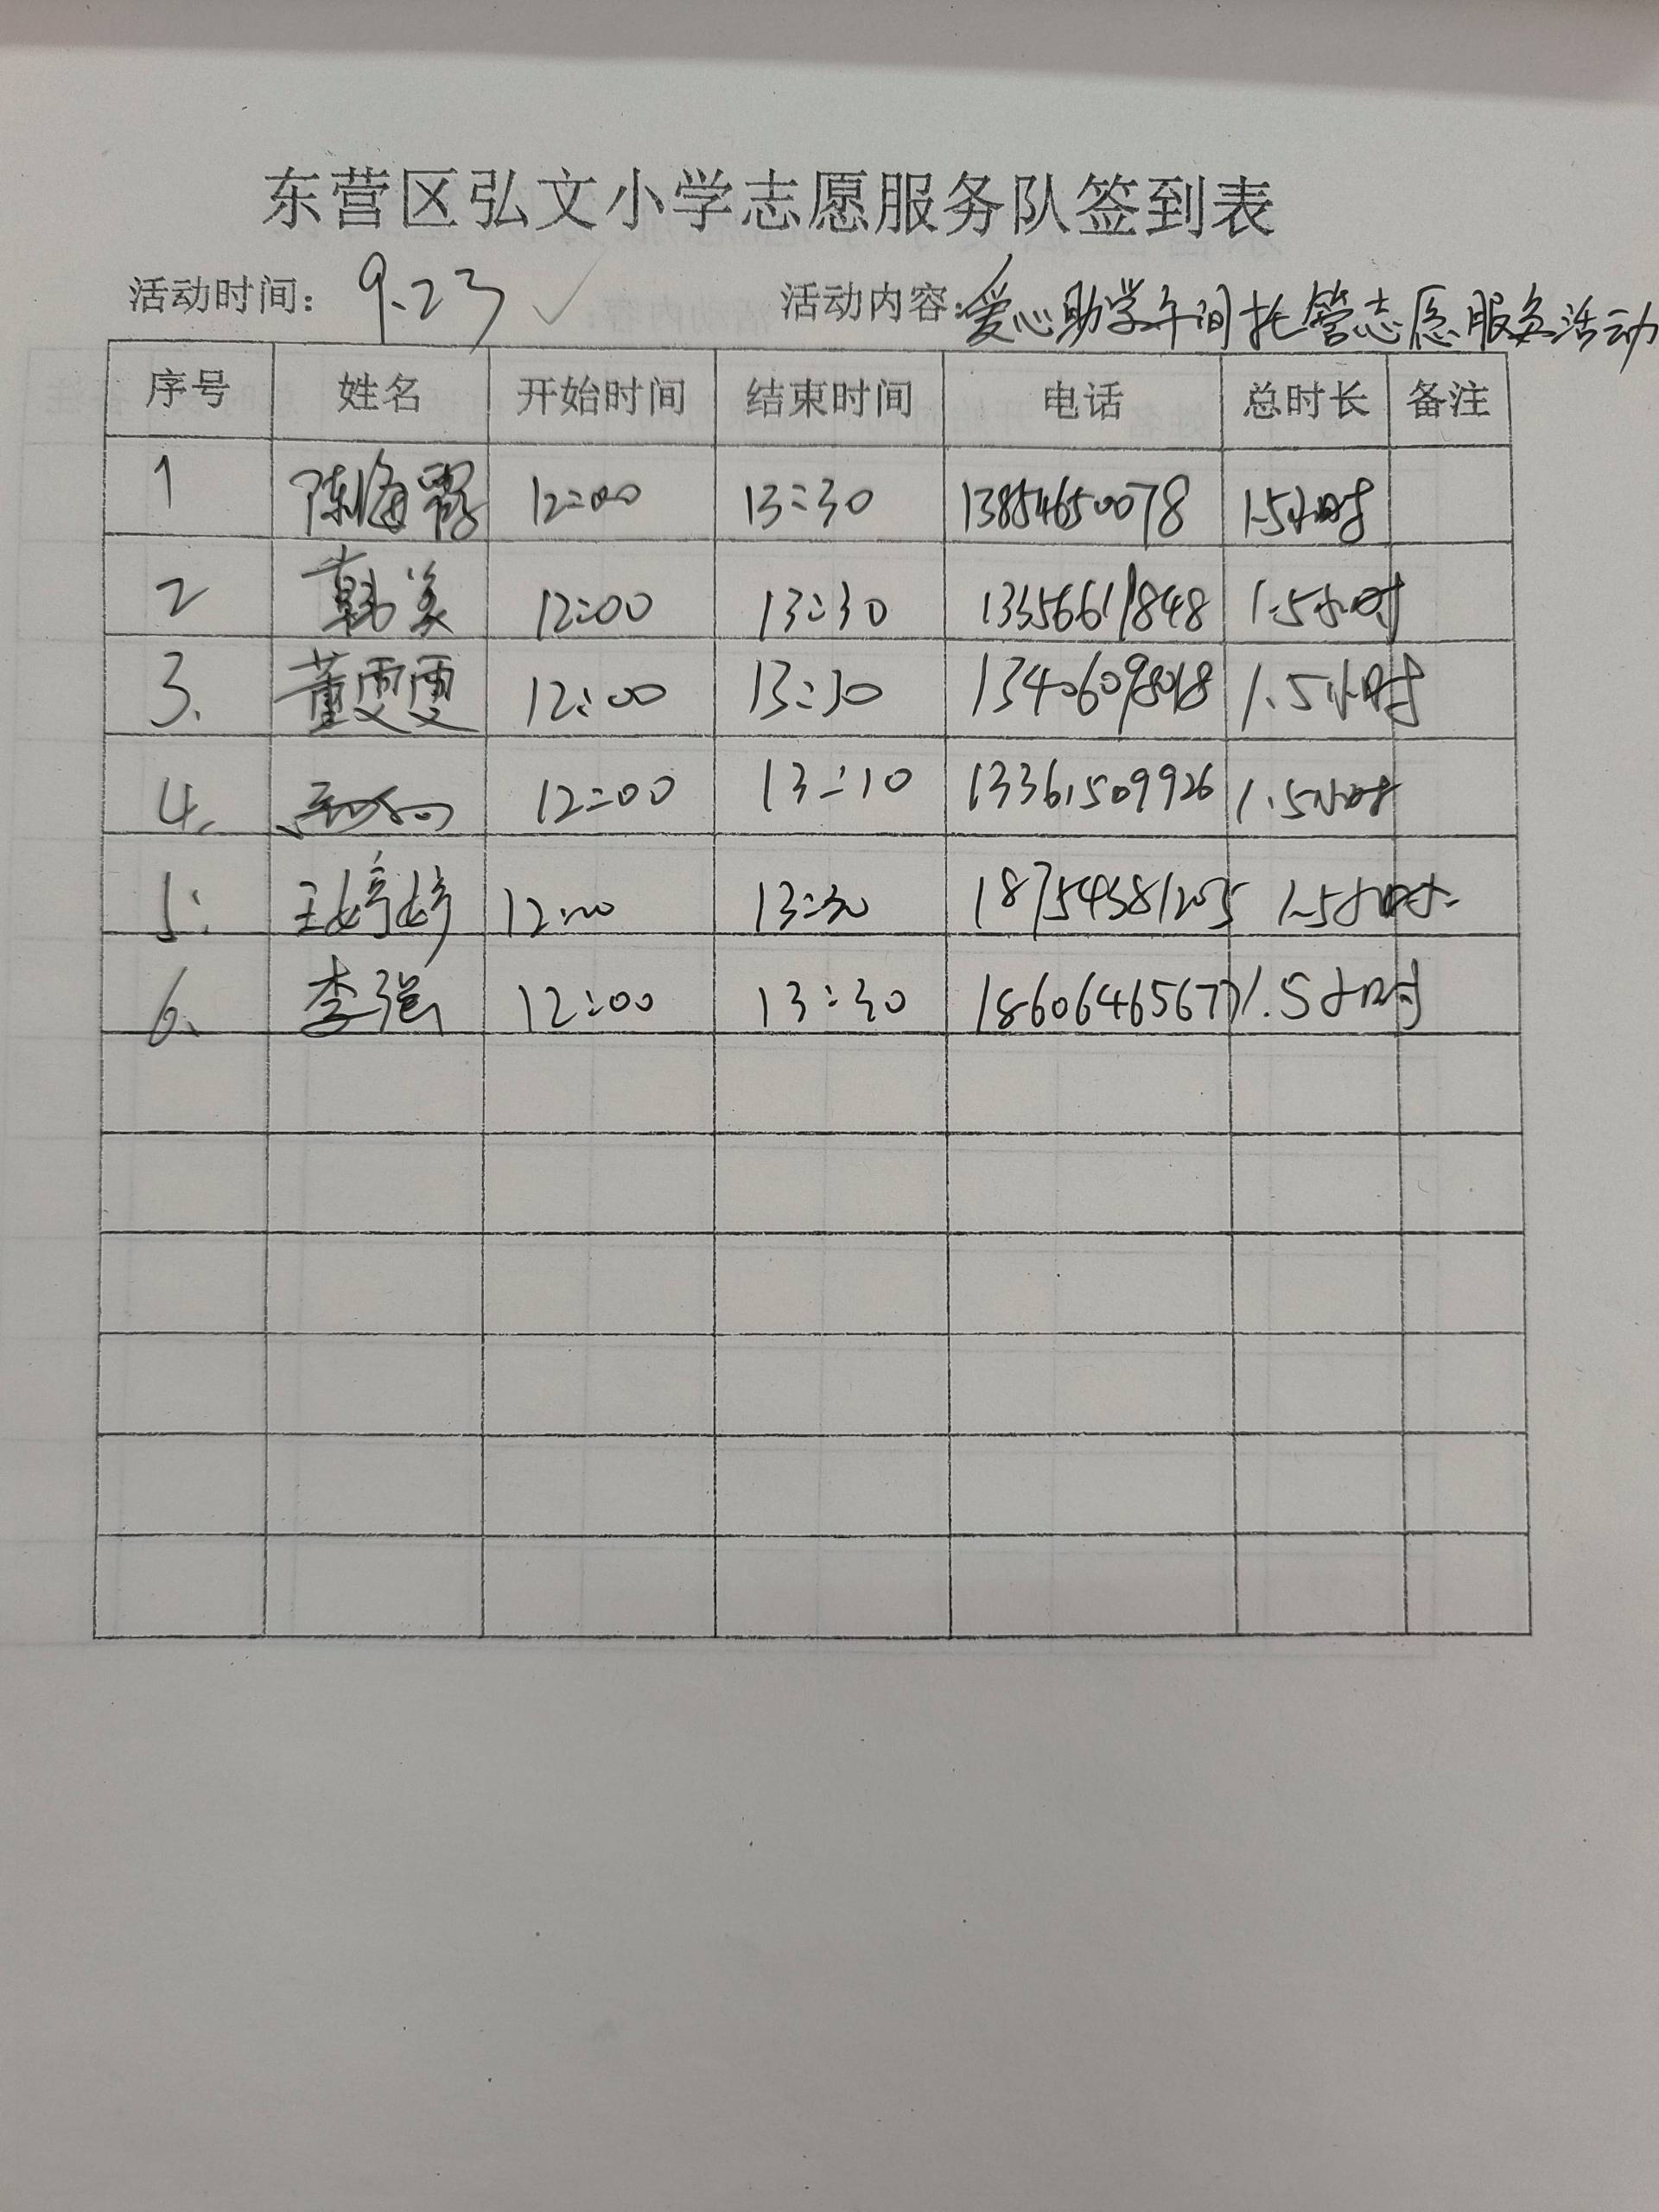 东营区弘文小学志愿服务队签到表
活动时间：9.23 ✓ 活动内容：爱心助学午间托管志愿服务活动
序号 姓名 开始时间 结束时间 电话 总时长 备注
1 陈海霞 12:00 13:30 13854650078 1.5小时
2 韩美 12:00 13:30 13356611848 1.5小时
3. 董雯雯 12:00 13:30 1.5小时
4. 12:00 13:10 13361509926 1.5小时
5. 王婷婷 12:00 13:30 1.5小时
6. 李强 12:00 13:30 18606465677 1.5小时